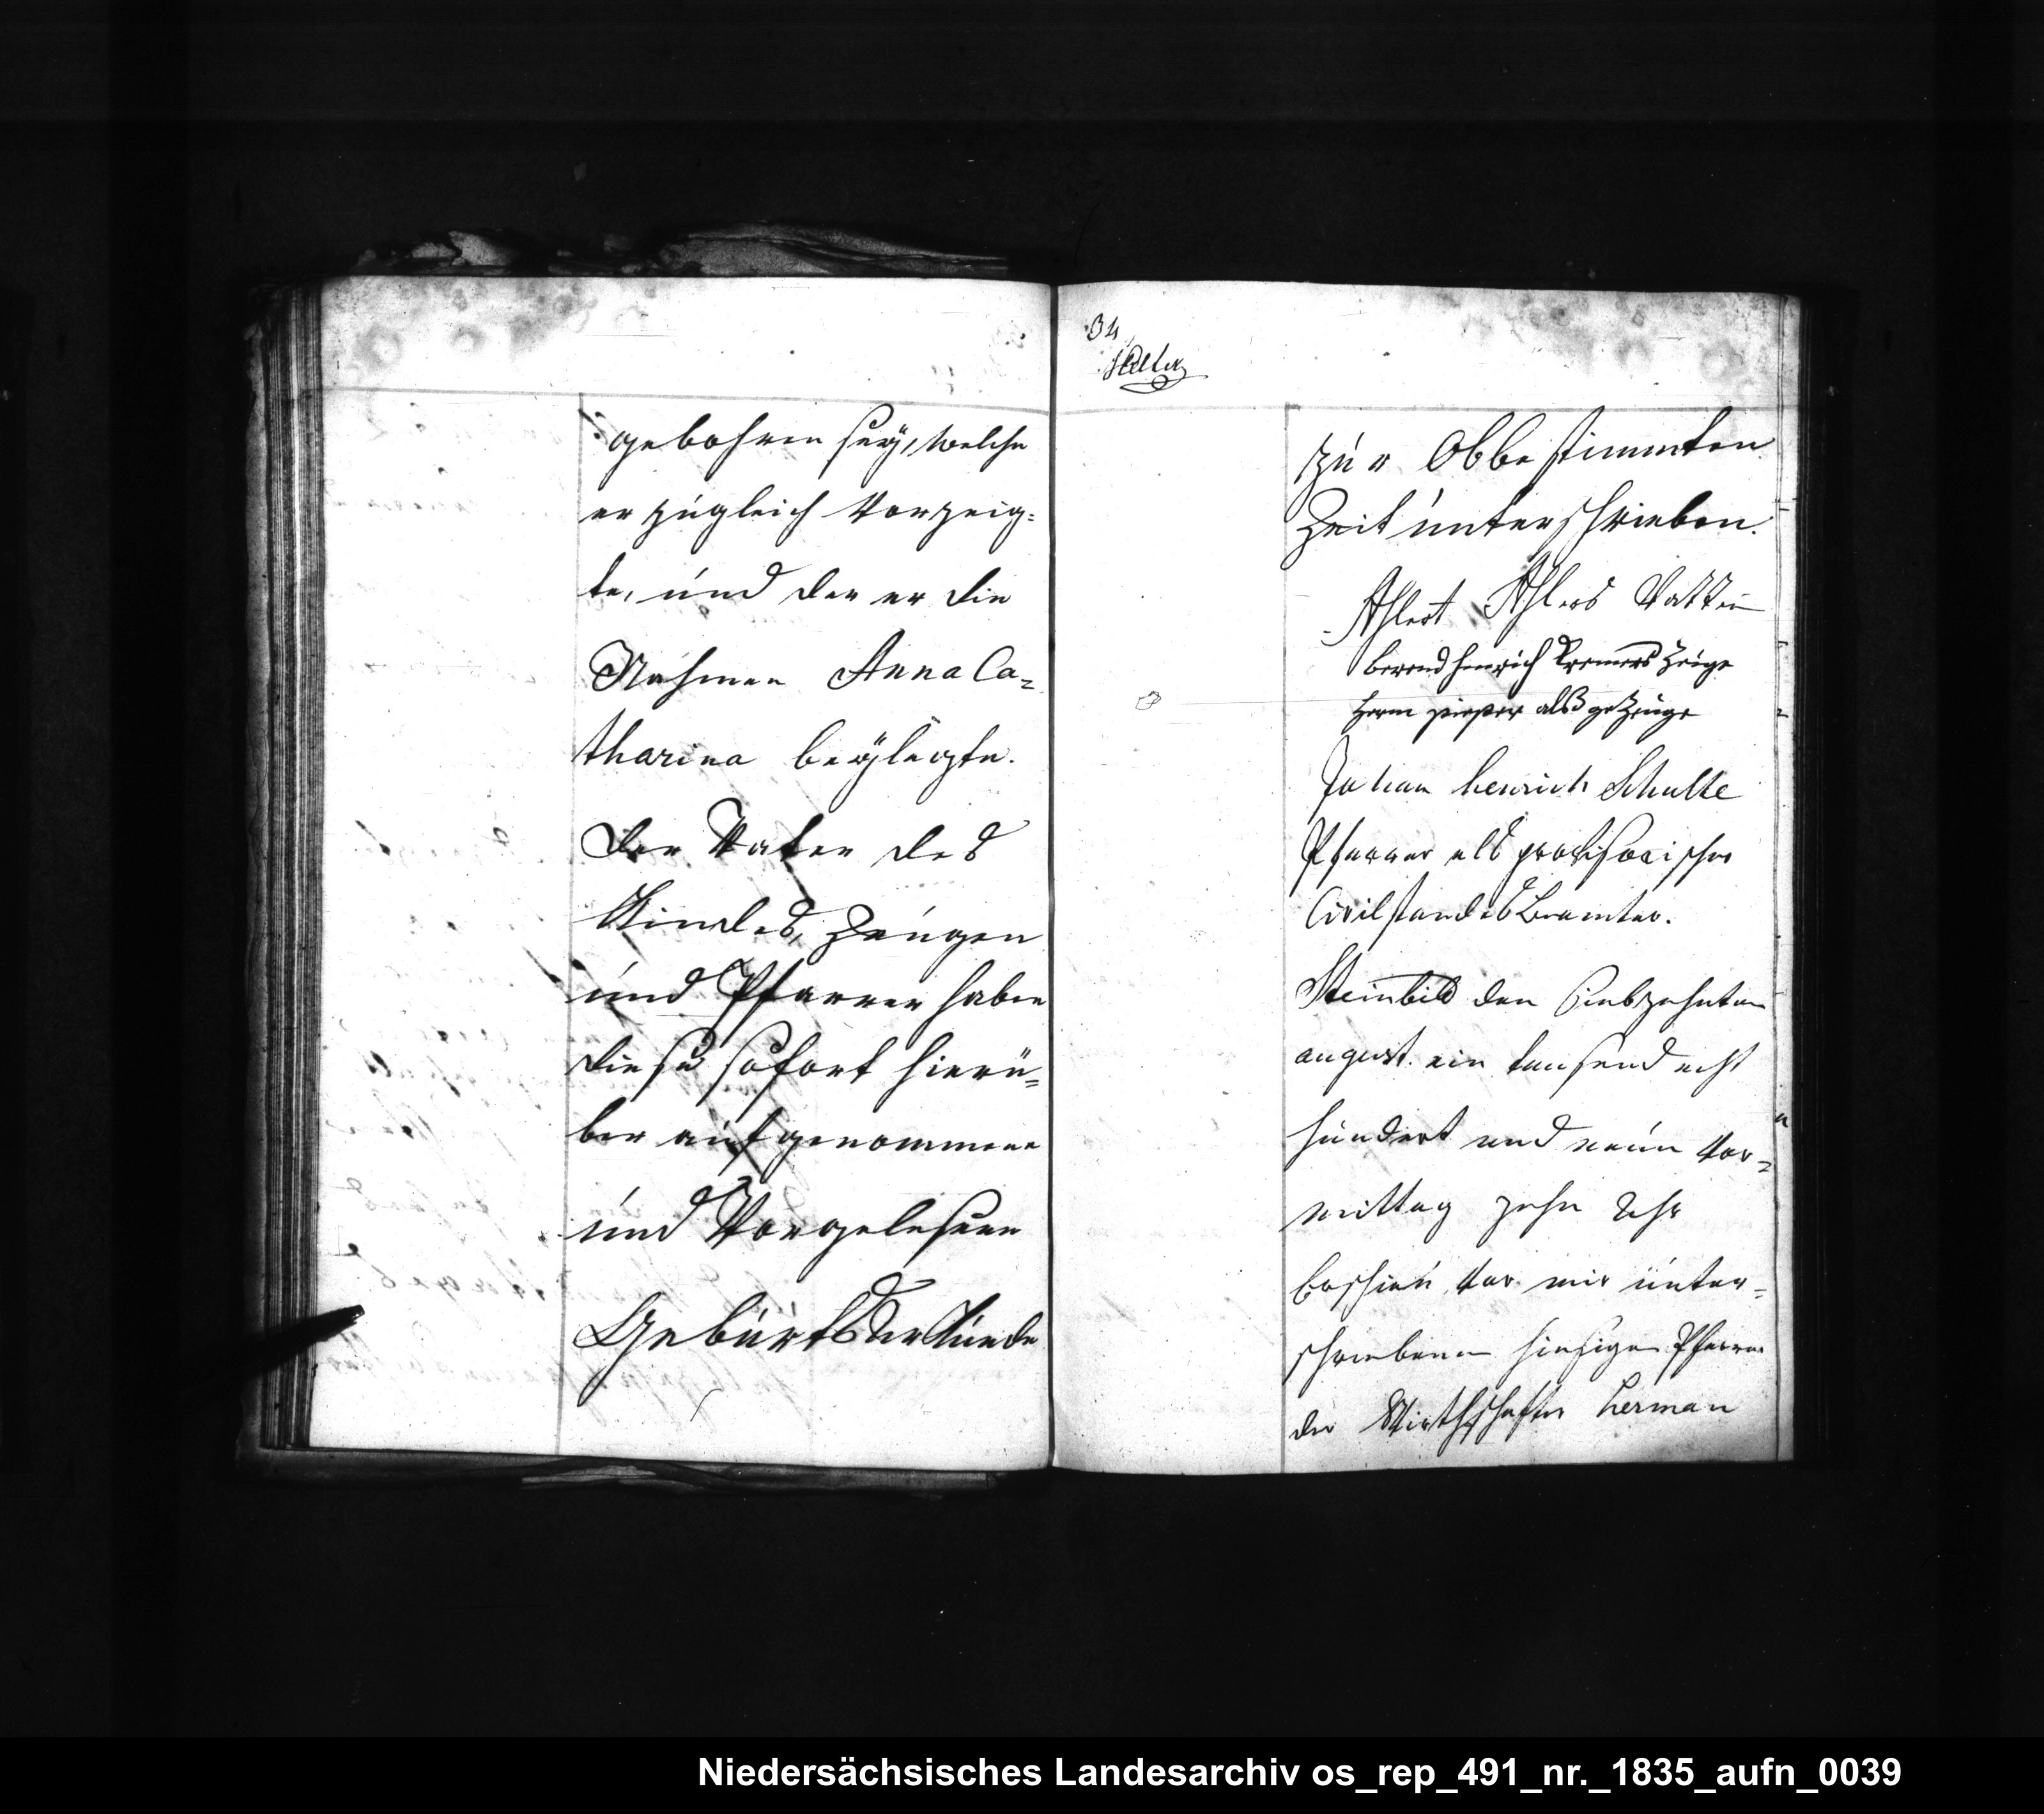 gebohren seÿ, welche
er zugleich Vorzeig=
te, und der er die
Nahmen Anna Ca=
tharina beÿlegte.
Der Vater des
Kindes, Zeugen
und Pfarrer haben
diese sofort hierü=
ber aufgenommene
und Vorgelesene
GeburtsUrkunde
34
zur Obbestimmten
Zeit unterschrieben.
Ahlert Ahlers Vatter
berend henrich Kremers Zeuge
Herm pieper alß geZeuge
Johan henrich Schulte
Pfarrer als provisorischer
CivilstandesBeamter.
Steinbild den Siebzehnten
august. ein tausend acht
hundert und neun Vor=
mittag zehn Uhr
Erschien Vor mir unter=
schriebenen hiesigen Pfarrer
der Wirthschafter Herman
Niedersächsisches Landesarchiv os_rep_491_nr._1835_aufn_0039